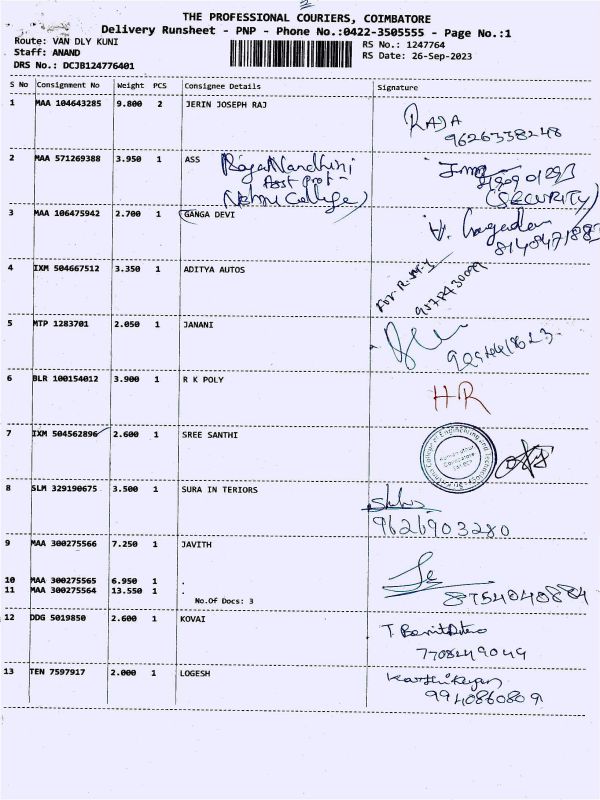 THE PROFESSIONAL COURIERS, COIMBATORE
Delivery Runsheet - PNP - Phone No.:0422-3505555 - Page No.:1
Route: VAN DLY KUNI
Staff: ANAND
DRS No.: DCJB124776401
RS No.: 1247764
RS Date: 26-Sep-2023
S No Consignment No Weight PCS Consignee Details Signature
1 MAA 104643285 9.800 2 JERIN JOSEPH RAJ RAJA
9626338248
2 MAA 571269388 3.950 1 ASS RajaNandhini
Asst prof -
Nehru College)
(SECURITY)
3 MAA 106475942 2.700 1 GANGA DEVI
4 IXM 504667512 3.350 1 ADITYA AUTOS
5 MTP 1283701 2.050 1 JANANI
6 BLR 100154012 3.900 1 R K POLY HR
7 IXM 504562896 2.600 1 SREE SANTHI
8 SLM 329190675 3.500 1 SURA IN TERIORS
9626903280
9 MAA 300275566 7.250 1 JAVITH
10 MAA 300275565 6.950 1 .
11 MAA 300275564 13.550 1 . 8754040884
No.Of Docs: 3
12 DDG 5019850 2.600 1 KOVAI
7708249049
13 TEN 7597917 2.000 1 LOGESH Karthikeyan
9940860809